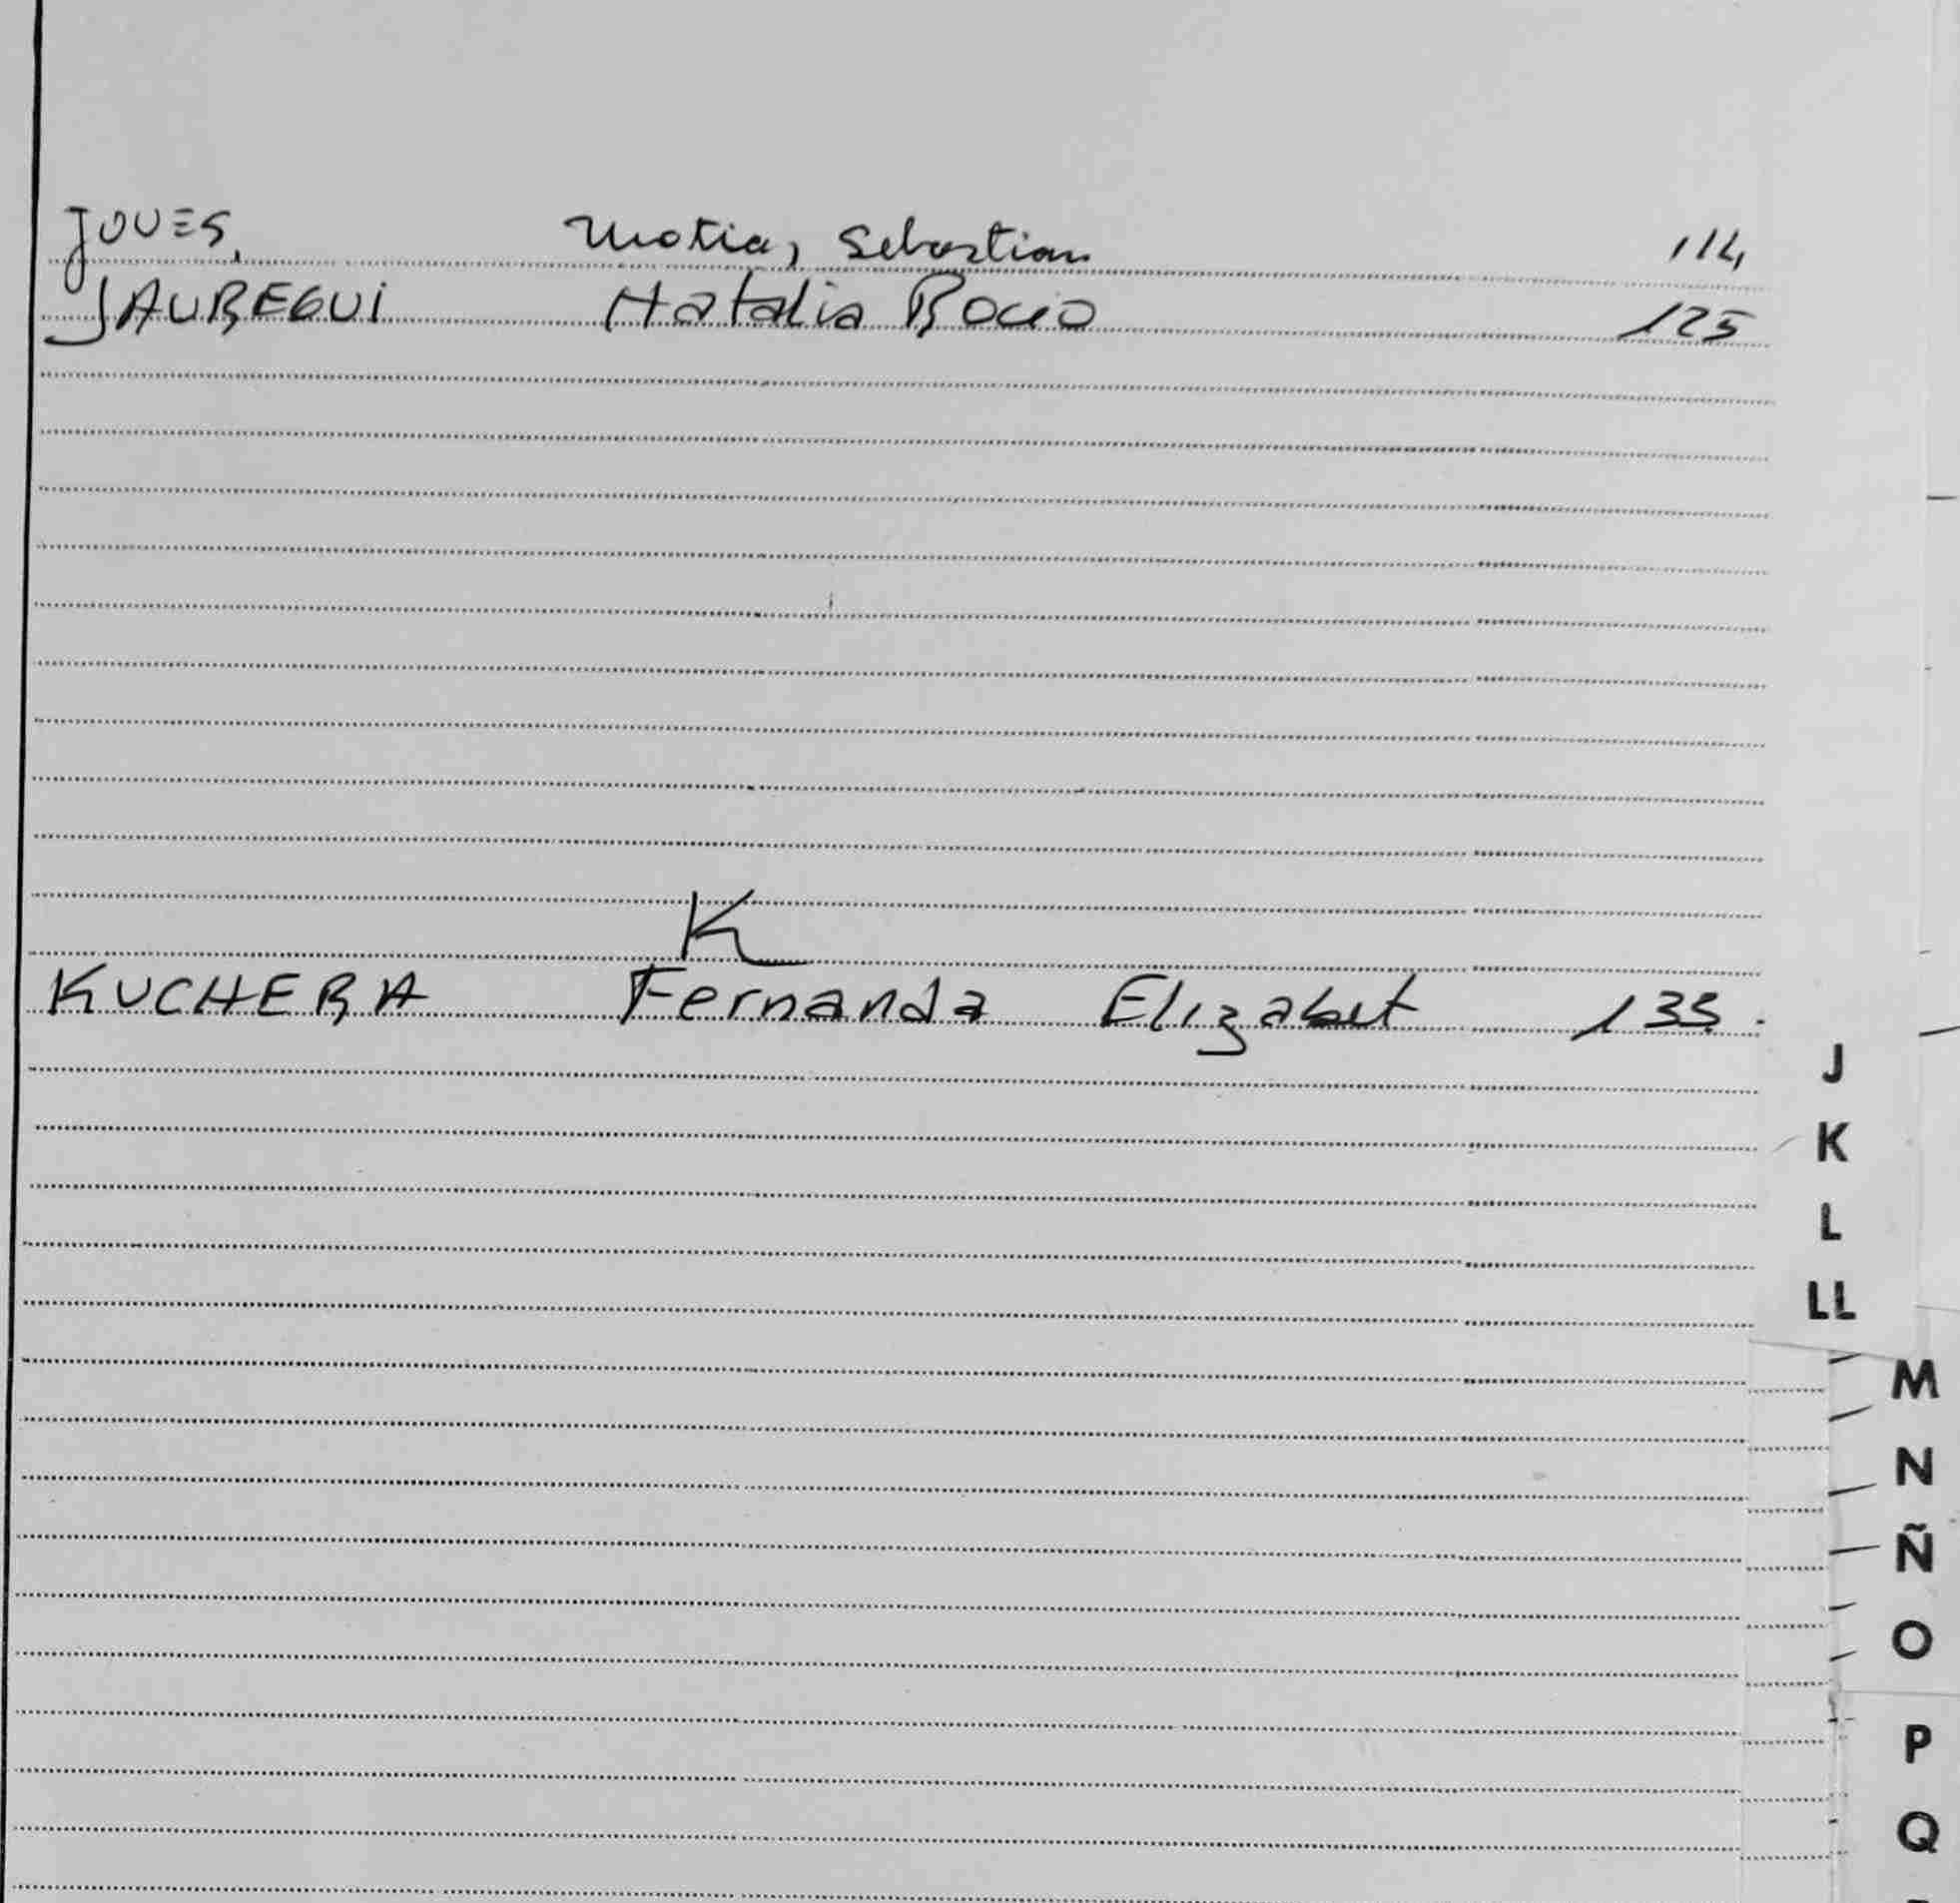 JOVES, Matias Sebastian 114
JAUREGUI Natalia Rocio 125
K
KUCHERA Fernanda Elizabet 133.
J
K
L
LL
M
N
Ñ
O
P
Q